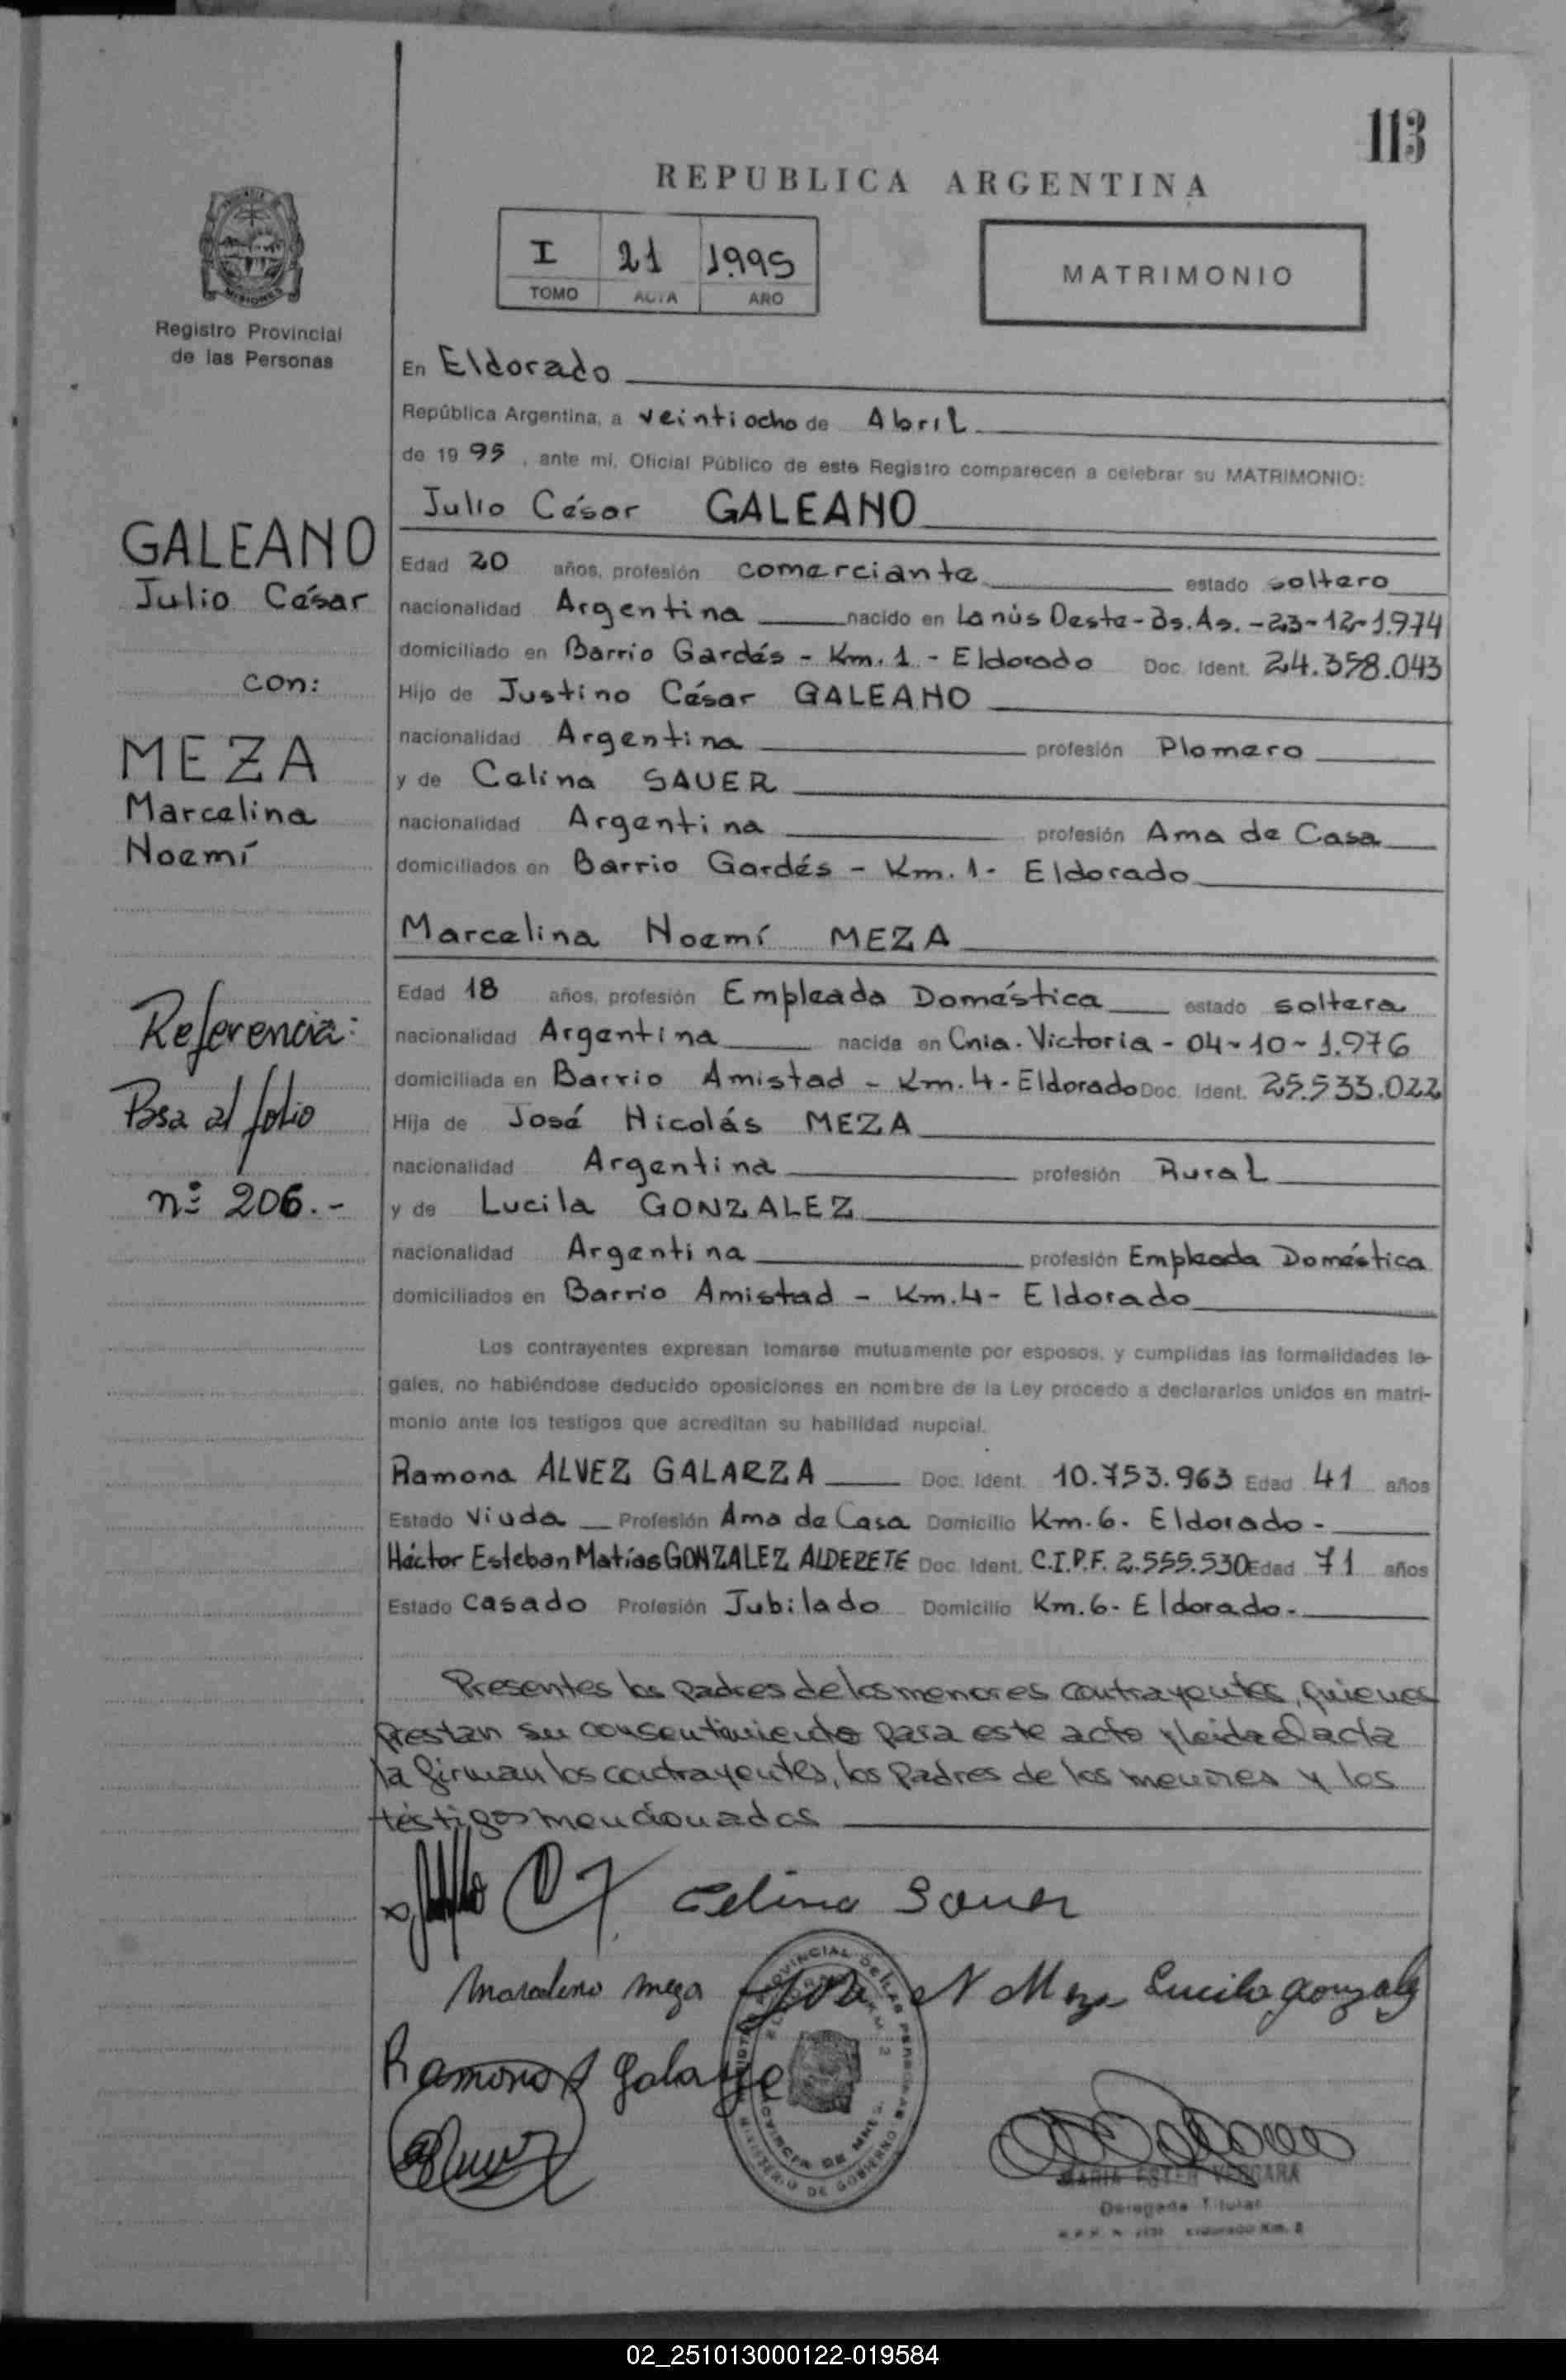 113
REPUBLICA ARGENTINA
I 21 1995
TOMO ACTA AÑO
MATRIMONIO
MISIONES
Registro Provincial
de las Personas
GALEANO
Julio César
con:
MEZA
Marcelina
Noemí
Referencia:
Pasa al folio
nº 206.-
En Eldorado
República Argentina, a veintiocho de Abril
de 1995, ante mí, Oficial Público de este Registro comparecen a celebrar su MATRIMONIO:
Julio César GALEANO
Edad 20 años, profesión comerciante estado soltero
nacionalidad Argentina nacido en Lanús Oeste - Bs. As. - 23-12-1.974
domiciliado en Barrio Gardés - Km. 1 - Eldorado Doc. Ident. 24.358.043
Hijo de Justino César GALEANO
nacionalidad Argentina profesión Plomero
y de Celina SAUER
nacionalidad Argentina profesión Ama de Casa
domiciliados en Barrio Gardés - Km. 1 - Eldorado
Marcelina Noemí MEZA
Edad 18 años, profesión Empleada Doméstica estado soltera
nacionalidad Argentina nacida en Cnia. Victoria - 04-10-1.976
domiciliada en Barrio Amistad - Km. 4 - Eldorado Doc. Ident. 25.533.022
Hija de José Nicolás MEZA
nacionalidad Argentina profesión Rural
y de Lucila GONZALEZ
nacionalidad Argentina profesión Empleada Doméstica
domiciliados en Barrio Amistad - Km. 4 - Eldorado
Los contrayentes expresan tomarse mutuamente por esposos, y cumplidas las formalidades le-
gales, no habiéndose deducido oposiciones en nombre de la Ley procedo a declararlos unidos en matri-
monio ante los testigos que acreditan su habilidad nupcial.
Ramona ALVEZ GALARZA Doc. Ident. 10.753.963 Edad 41 años
Estado Viuda Profesión Ama de Casa Domicilio Km. 6. Eldorado -
Héctor Esteban Matías GONZALEZ ALDERETE Doc. Ident. C.I.P.F. 2.555.530 Edad 71 años
Estado Casado Profesión Jubilado Domicilio Km. 6 - Eldorado -
Presentes los padres de los menores contrayentes, quienes
prestan su consentimiento para este acto y leida el acta
la firman los contrayentes, los padres de los menores y los
testigos mencionados
Celina Sauer
Marcelina Meza José N Meza Lucila Gonzalez
Ramona A Galarze
MARIA ESTER VERGARA
Delegada Titular
Eldorado Km. 2
02_251013000122-019584